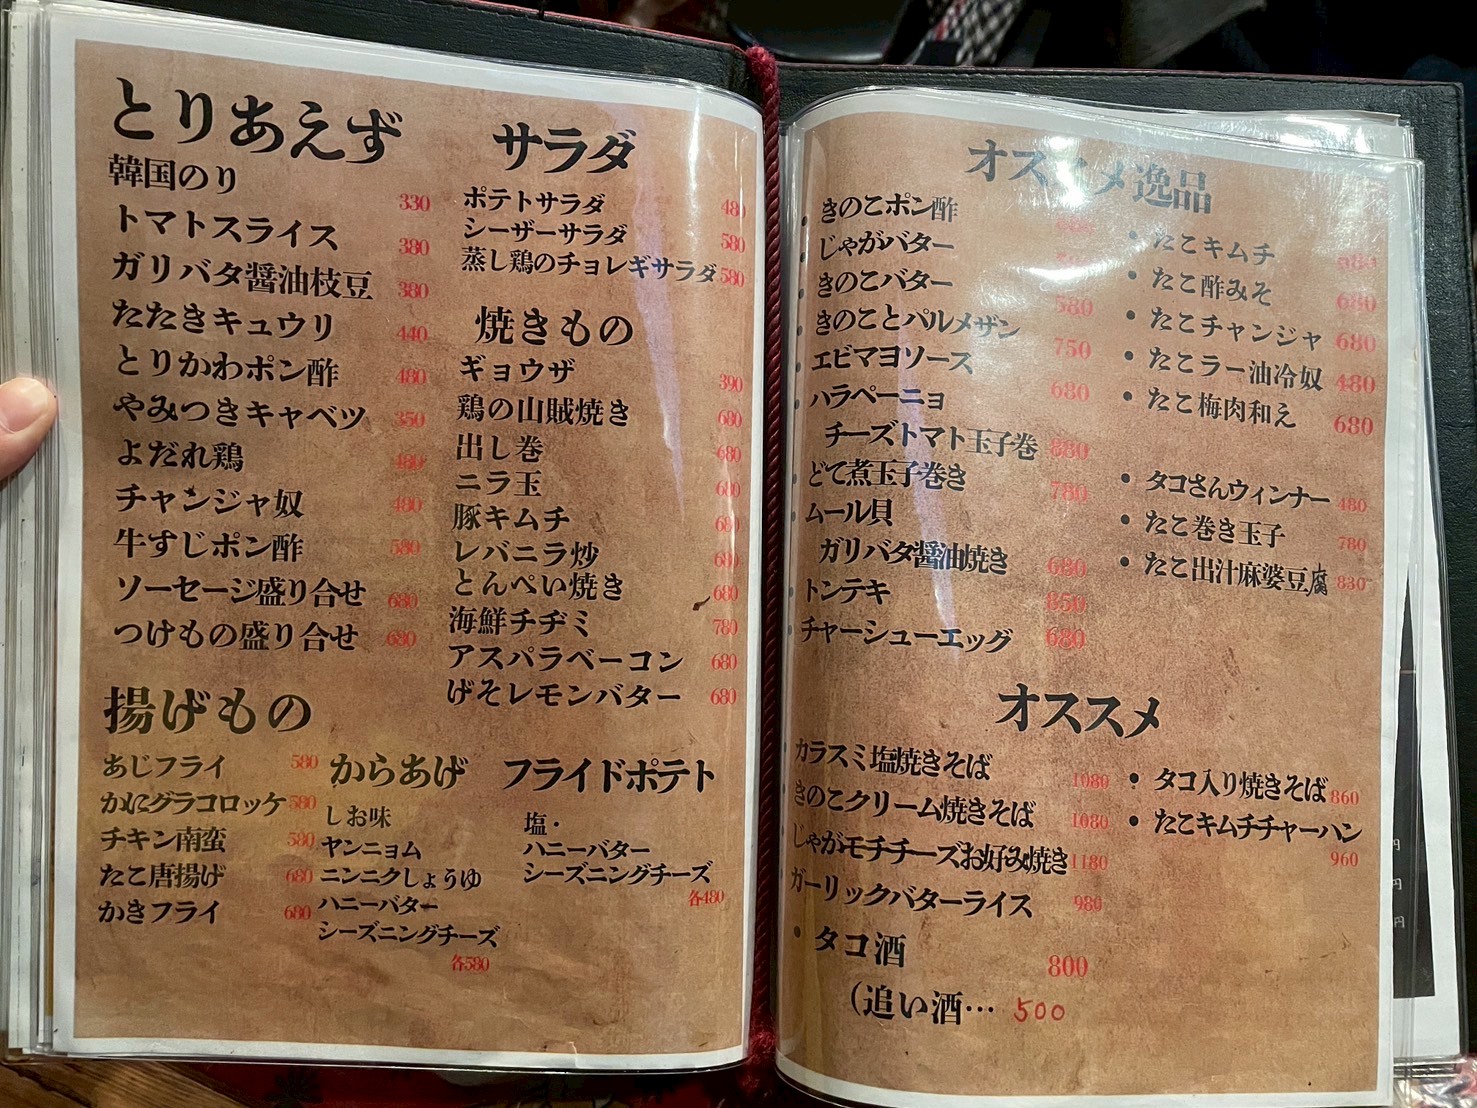 とりあえず
韓国のり 330
トマトスライス 380
ガリバタ醤油枝豆 380
たたきキュウリ 440
とりかわポン酢 480
やみつきキャベツ 350
よだれ鶏 480
チャンジャ奴 480
牛すじポン酢 580
ソーセージ盛り合せ 680
つけもの盛り合せ 680
サラダ
ポテトサラダ 480
シーザーサラダ 580
蒸し鶏のチョレギサラダ 580
焼きもの
ギョウザ 390
鶏の山賊焼き 680
出し巻 680
ニラ玉 680
豚キムチ 680
レバニラ炒 680
とんぺい焼き 680
海鮮チヂミ 780
アスパラベーコン 680
げそレモンバター 680
揚げもの
あじフライ 580
かにグラコロッケ 580
チキン南蛮 580
たこ唐揚げ 680
かきフライ 680
からあげ
しお味
ヤンニョム
ニンニクしょうゆ
ハニーバター
シーズニングチーズ
各580
フライドポテト
塩・
ハニーバター
シーズニングチーズ
各480
オススメ逸品
きのこポン酢
じゃがバター
きのこバター 580
きのことパルメザン 750
エビマヨソース 680
ハラペーニョ
チーズトマト玉子巻 880
どて煮玉子巻き 780
ムール貝
ガリバタ醤油焼き 680
トンテキ 850
チャーシューエッグ 680
・たこキムチ
・たこ酢みそ 680
・たこチャンジャ 680
・たこラー油冷奴 480
・たこ梅肉和え 680
・タコさんウィンナー 480
・たこ巻き玉子 780
・たこ出汁麻婆豆腐 830
オススメ
カラスミ塩焼きそば 1080
きのこクリーム焼きそば 1080
じゃがモチチーズお好み焼き 1180
ガーリックバターライス 980
・タコ酒 800
(追い酒… 500
・タコ入り焼きそば 860
・たこキムチチャーハン
960
円
円
円